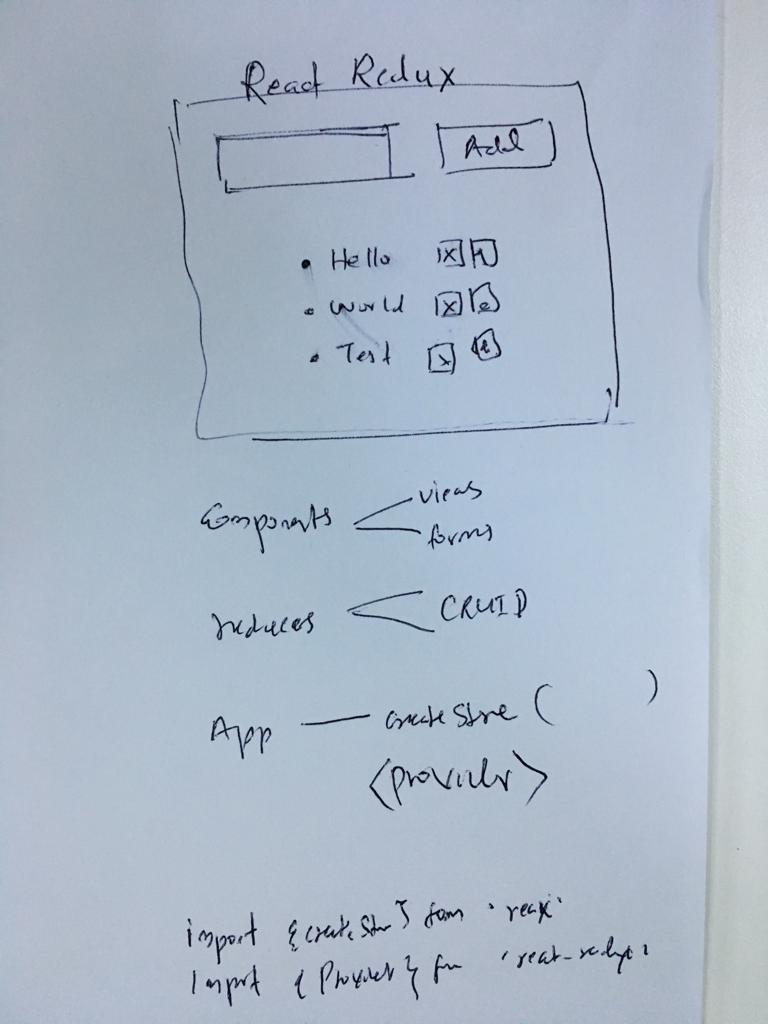 React Redux
Add
• Hello x
• World x e
• Test x e
Components views
forms
reducers CRUD
App createStore ( )
<Provider>
import {createStore} from 'redux'
import {Provider} from 'react-redux'